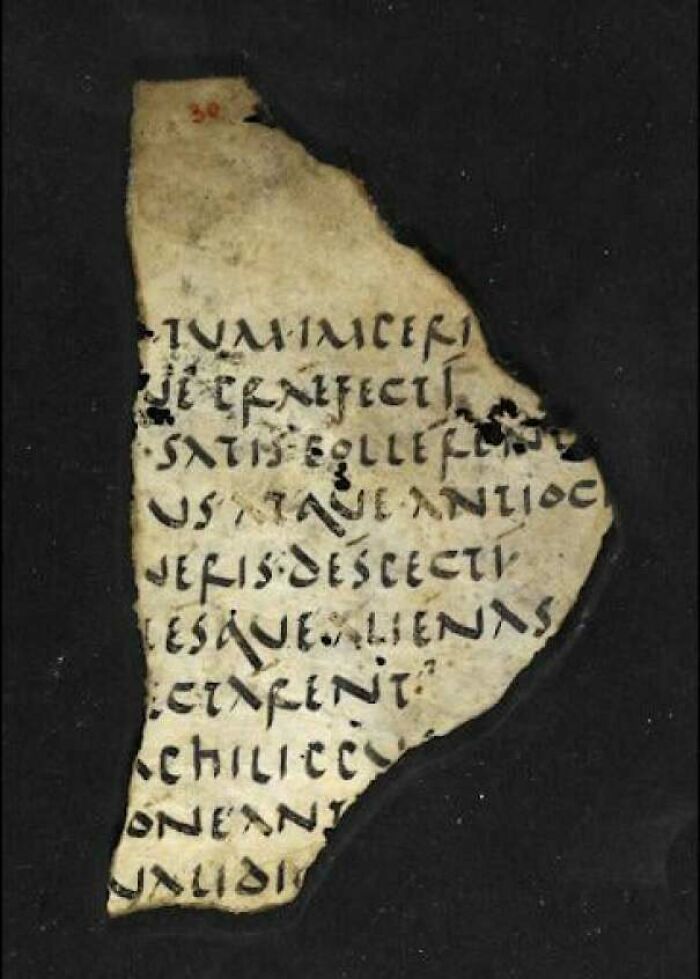 30
TUM·IMPERI
UE·PRAEFECTI
·SATIS·POLLERENT
US·ATQUE·ANTIOC
NERIS·DESPECTI
ESQUE·ALIENAS
ECTARENT
PHILIPPUS
ONE·ANT
UALIDI